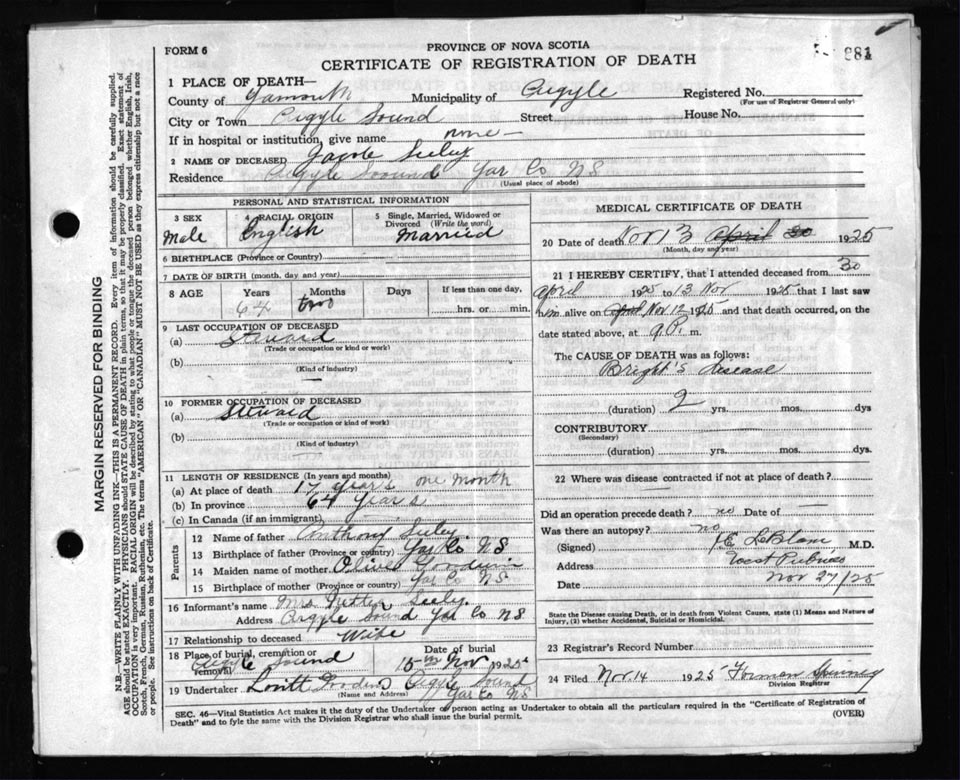 881
FORM 6
PROVINCE OF NOVA SCOTIA
CERTIFICATE OF REGISTRATION OF DEATH
MARGIN RESERVED FOR BINDING
N.B.—WRITE PLAINLY WITH UNFADING INK—THIS IS A PERMANENT RECORD. Every item of information should be carefully supplied.
AGE should be stated EXACTLY. PHYSICIANS should STATE CAUSE OF DEATH in plain terms, so that it may be properly classified. Exact statement of
OCCUPATION is very important. RACIAL ORIGIN will be described by stating to what people or tongue the deceased person belonged whether English, Irish,
Scotch, French, German, Russian, Ruthenian, etc. The terms "AMERICAN" OR "CANADIAN" MUST NOT BE USED as they express citizenship but not a race
or people. See instructions on back of Certificate.
1 PLACE OF DEATH—
County of Yarmouth Municipality of Argyle Registered No.
(For use of Registrar General only)
City or Town Argyle Sound Street House No.
If in hospital or institution, give name none
2 NAME OF DECEASED Jacob Seeley
Residence Argyle Sound Yar Co NS
(Usual place of abode)
PERSONAL AND STATISTICAL INFORMATION
3 SEX Male
4 RACIAL ORIGIN English
5 Single, Married, Widowed or Divorced (Write the word) Married
6 BIRTHPLACE (Province or Country)
7 DATE OF BIRTH (month, day and year)
8 AGE Years 64 Months two Days If less than one day, hrs. or min.
9 LAST OCCUPATION OF DECEASED
(a) Steward
(Trade or occupation or kind of work)
(b)
(Kind of industry)
10 FORMER OCCUPATION OF DECEASED
(a) Steward
(Trade or occupation or kind of work)
(b)
(Kind of industry)
11 LENGTH OF RESIDENCE (In years and months)
(a) At place of death years one month
(b) In province 64 years
(c) In Canada (if an immigrant)
Parents
12 Name of father Anthony Seeley
13 Birthplace of father (Province or country) Yar Co. NS
14 Maiden name of mother Olive Goodwin
15 Birthplace of mother (Province or country) Yar Co NS
16 Informant's name Mrs Seely
Address Argyle Sound Yar Co NS
17 Relationship to deceased Wife
18 Place of burial, cremation or removal Argyle Sound Date of burial 15 Nov 1925
19 Undertaker Lovitt Argyle Sound
(Name and Address) Yar Co NS
MEDICAL CERTIFICATE OF DEATH
20 Date of death Nov 13 April 30 1925
(Month, day and year)
21 I HEREBY CERTIFY, that I attended deceased from 30
April 1925 to 13 Nov 1925 that I last saw
him alive on April Nov 12 1925 and that death occurred, on the
date stated above, at 9 P. m.
The CAUSE OF DEATH was as follows:
Bright's disease
(duration) 2 yrs. mos. dys
CONTRIBUTORY
(Secondary)
(duration) yrs. mos. dys.
22 Where was disease contracted if not at place of death?
Did an operation precede death? no Date of
Was there an autopsy? no
(Signed) LeBlanc M.D.
Address West Pubnico
Date Nov 27/25
State the Disease causing Death, or in death from Violent Causes, state (1) Means and Nature of
Injury, (2) whether Accidental, Suicidal or Homicidal.
23 Registrar's Record Number
24 Filed Nov. 14 1925 Forman Spinney
Division Registrar
SEC. 46—Vital Statistics Act makes it the duty of the Undertaker or person acting as Undertaker to obtain all the particulars required in the "Certificate of Registration of
Death" and to fyle the same with the Division Registrar who shall issue the burial permit. (OVER)